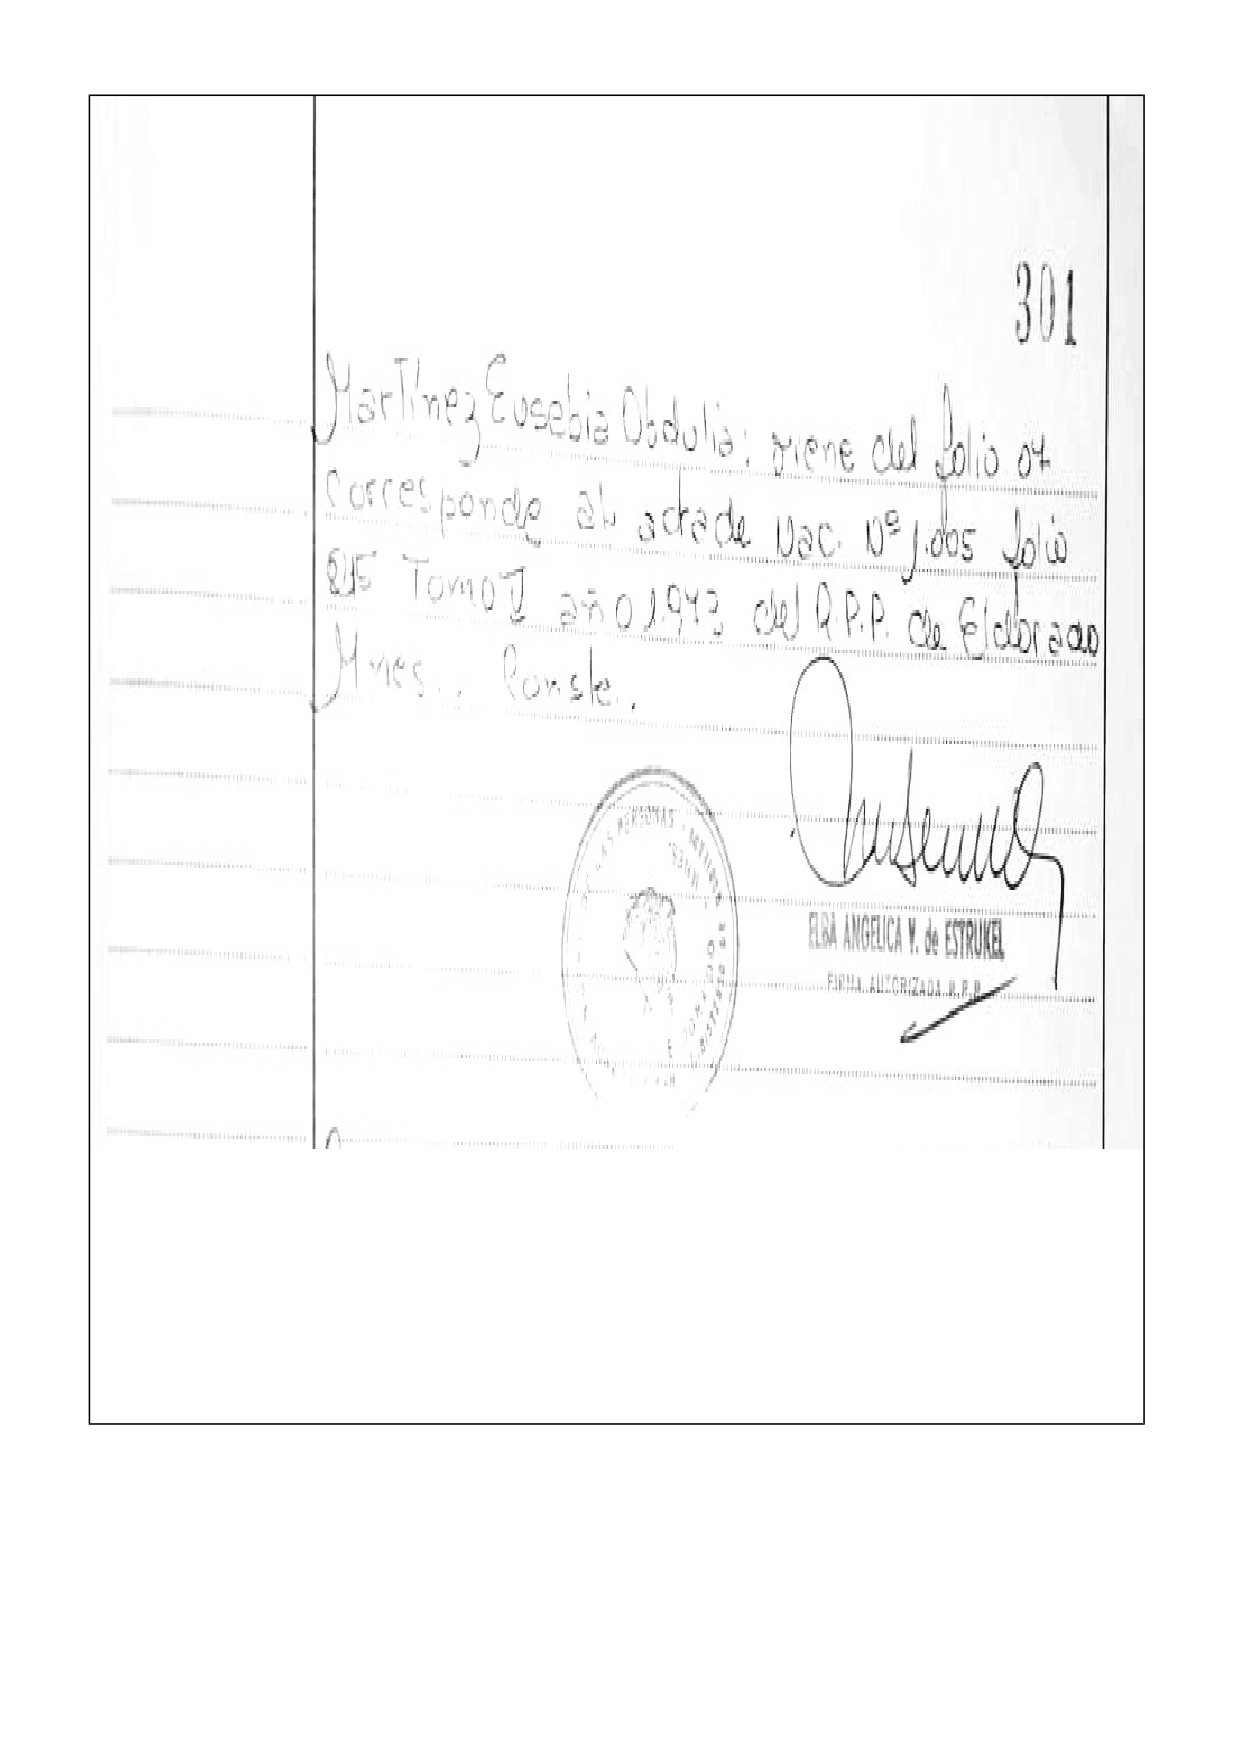 301
Martínez Eusebia Obdulia; viene del folio 07
Corresponde al acta de Nac. Nº 1.205 folio
215 Tomo II año 1.943 del R.P.P. de Eldorado
Mnes.. Conste.
LAS PERSONAS
ELBA ANGELICA V. de ESTRUKEL
FIRMA AUTORIZADA R.P.P.